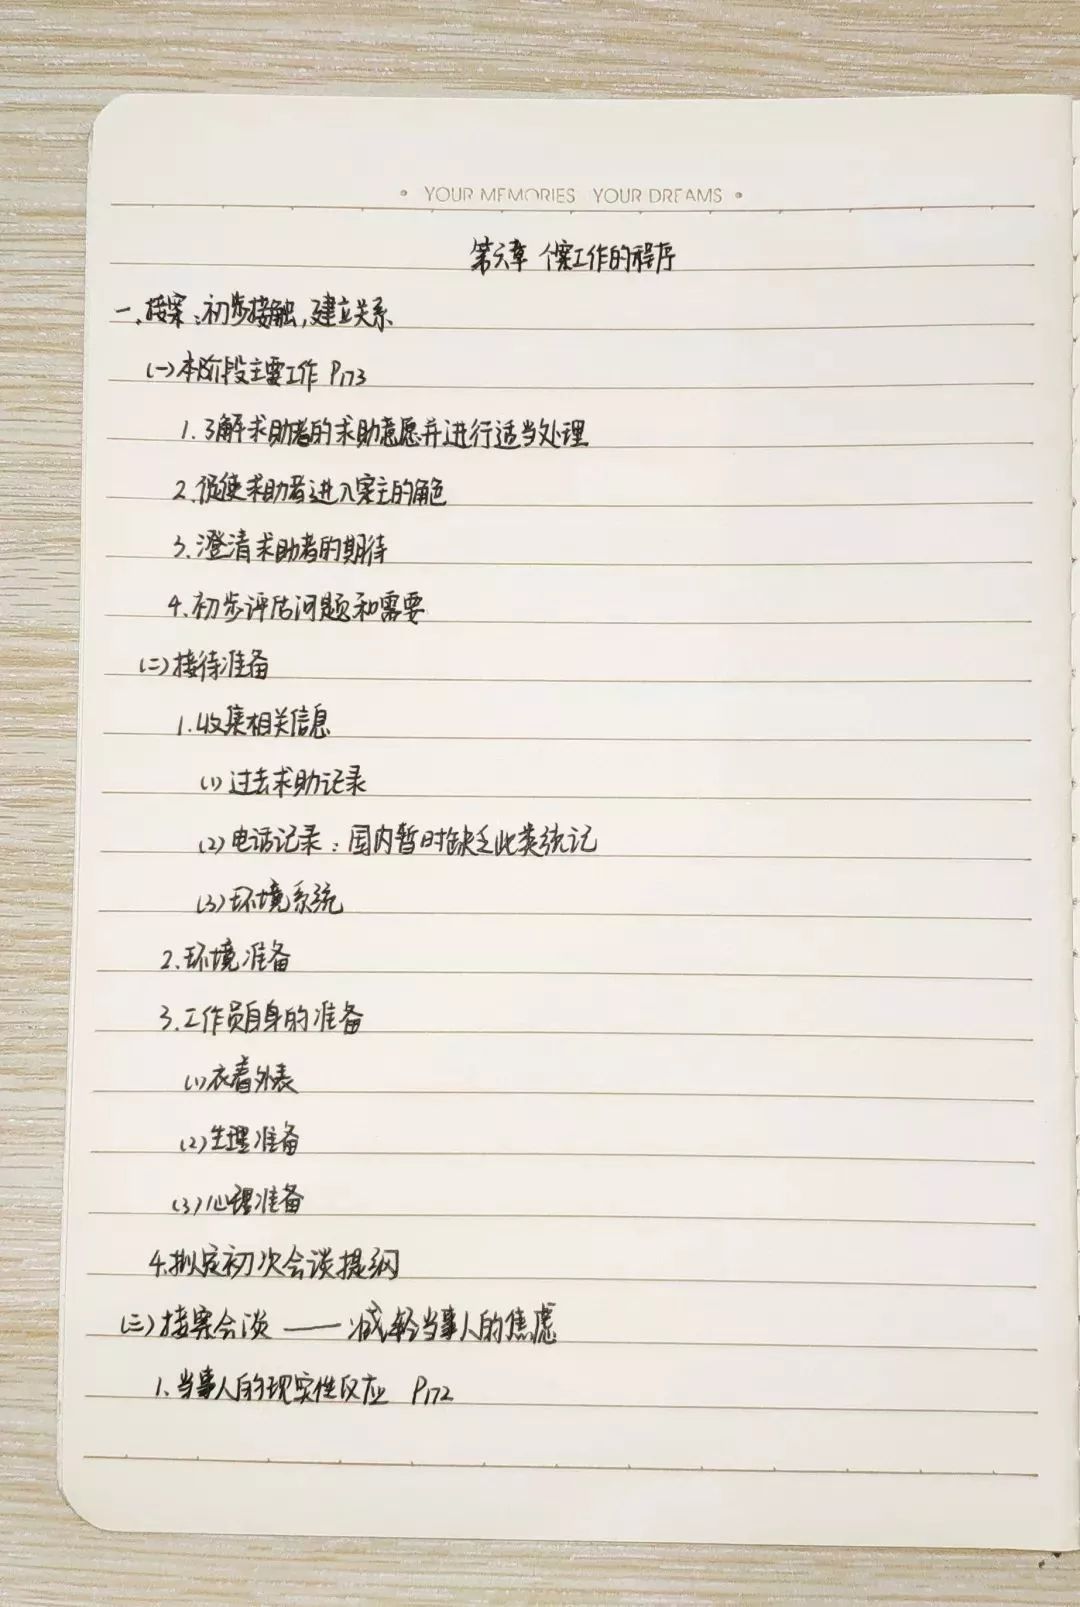 YOUR MEMORIES YOUR DREAMS
第六章 个案工作的程序
一、接案：初步接触，建立关系
(一)本阶段主要工作 P173
1.了解求助者的求助意愿并进行适当处理
2.促使求助者进入案主的角色
3.澄清求助者的期待
4.初步评估问题和需要
(二)接待准备
1.收集相关信息
(1)过去求助记录
(2)电话记录：国内暂时缺乏此类统记
(3)环境系统
2.环境准备
3.工作员自身的准备
(1)衣着外表
(2)生理准备
(3)心理准备
4.拟定初次会谈提纲
(三)接案会谈——减轻当事人的焦虑
1.当事人的现实性反应 P172